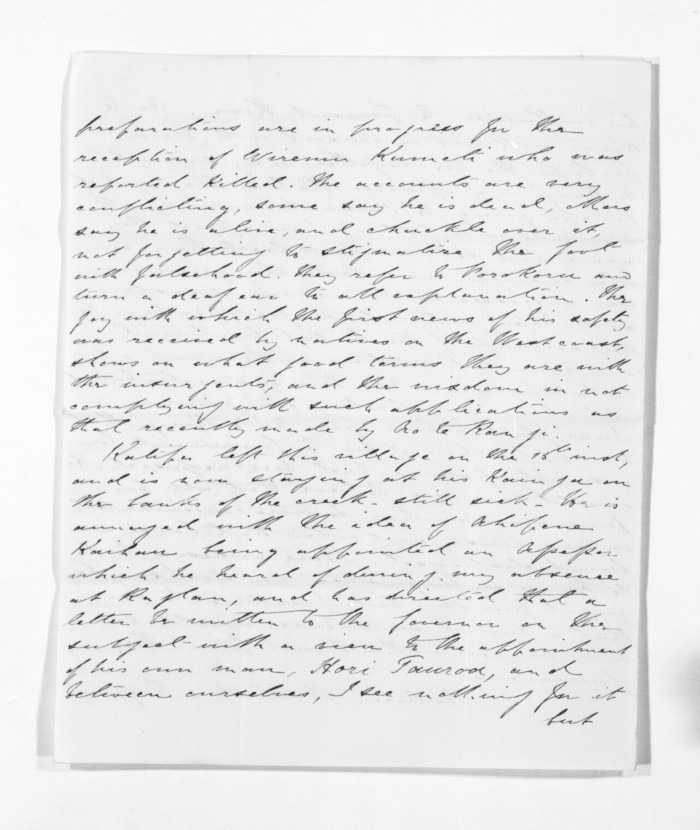 preparations are in progress for the
reception of Wiremu Kumeti who was
reported killed. The accounts are very
conflicting, some say he is dead, others
say he is alive, and chuckle over it,
not forgetting to stigmatize the
with falsehood. They refer to and
turn a deaf ear to all explanation. The
joy with which the first news of his safety
was received by natives on the West coast,
shows on what good terms they are with
the insurgents, and the wisdom in not
complying with such applications as
that recently made by
Katipa left this village on the 15th inst,
and is now staying at his Kainga on
the banks of the creek - still sick - He is
annoyed with the idea of
Kaihau being appointed an Assessor
which he heard of during my absence
at Raglan, and has directed that a
letter be written to the Governor on the
subject with a view to the appointment
of his own man, Hori Tauroa, and
between ourselves, I see nothing for it
but